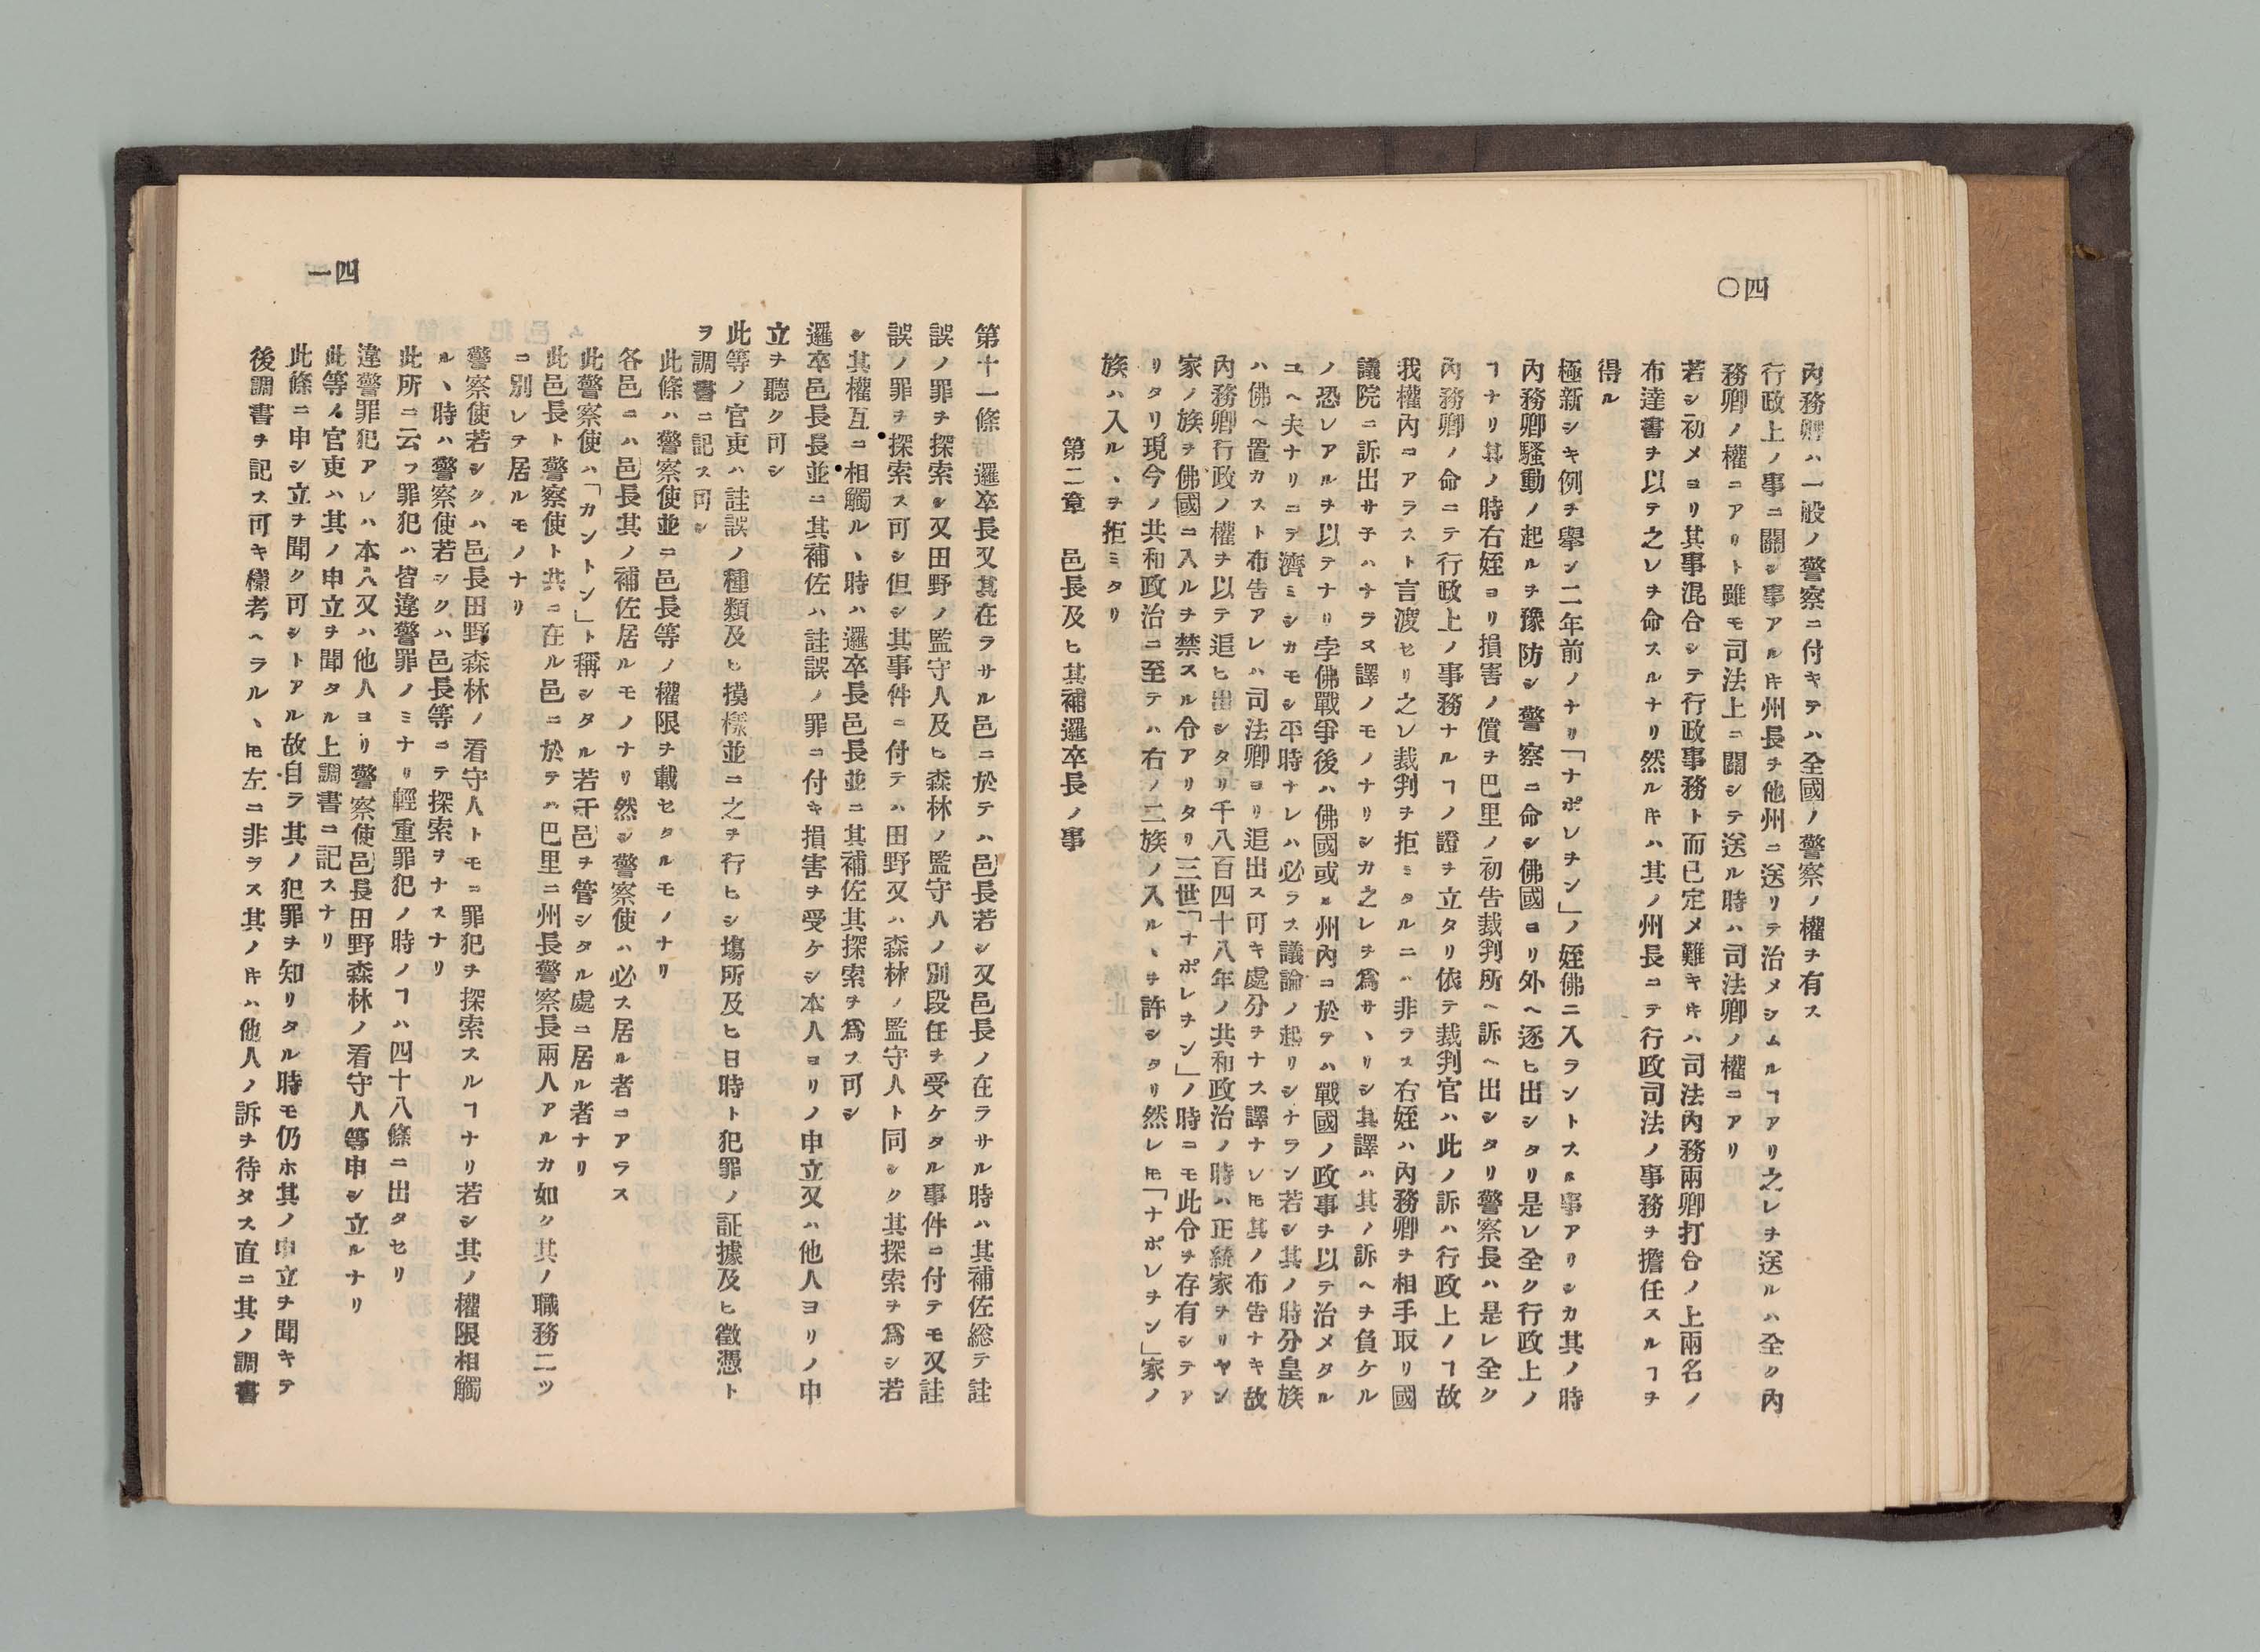 四〇
內務卿ハ一般ノ警察ニ付キテハ全國ノ警察ノ權ヲ有ス
行政上ノ事ニ關シ事アルㇳキ州長ヲ他州ニ送リテ治メシムルヿアリ之レヲ送ルハ全ク內
務卿ノ權ニアリト雖モ司法上ニ關シテ送ル時ハ司法卿ノ權ニアリ
若シ初メヨリ其事混合シテ行政事務ト而已定メ難キㇳキハ司法內務兩卿打合ノ上兩名ノ
布達書ヲ以テ之レヲ命スルナリ然ルㇳキハ其ノ州長ニテ行政司法ノ事務ヲ擔任スルヿヲ
得ル
極新シキ例ヲ擧シ二年前ノナリ「ナポレヲン」ノ姪佛ニ入ラントスル事アリシカ其ノ時
內務卿騷動ノ起ルヲ豫防シ警察ニ命シ佛國ヨリ外ヘ逐ヒ出シタリ是レ全ク行政上ノ
ヿナリ其ノ時右姪ヨリ損害ノ償ヲ巴里ノ初告裁判所ヘ訴ヘ出シタリ警察長ハ是レ全ク
內務卿ノ命ニテ行政上ノ事務ナルヿノ證ヲ立タリ依テ裁判官ハ此ノ訴ハ行政上ノヿ故
我權內ニアラスト言渡セリ之レ裁判ヲ拒ミタルニハ非ラス右姪ハ內務卿ヲ相手取リ國
議院ニ訴出サ子ハナラヌ譯ノモノナリシカ之レヲ爲サヽリシ其譯ハ其ノ訴ヘヲ負ケル
ノ恐レアルヲ以テナリ孛佛戰爭後ハ佛國或ル州內ニ於テハ戰國ノ政事ヲ以テ治メタル
ユヘ夫ナリニテ濟ミシカモシ平時ナレハ必ラス議論ノ起リシナラン若シ其ノ時分皇族
ハ佛ヘ置カスト布告アレハ司法卿ヨリ追出ス可キ處分ヲナス譯ナレㇳモ其ノ布告ナキ故
內務卿行政ノ權ヲ以テ追ヒ出シタリ千八百四十八年ノ共和政治ノ時ハ正統家ヲリヤン
家ノ族ヲ佛國ニ入ルヲ禁スル令アリタリ三世「ナポレヲン」ノ時ニモ此令ヲ存有シテア
リタリ現今ノ共和政治ニ至テハ右ノ二族ノ入ルヽヲ許シタリ然レㇳモ「ナポレヲン」家ノ
族ハ入ルヽヲ拒ミタリ
第二章　邑長及ヒ其補邏卒長ノ事
四一
第十一條　邏卒長又其在ラサル邑ニ於テハ邑長若シ又邑長ノ在ラサル時ハ其補佐総テ註
誤ノ罪ヲ探索シ又田野ノ監守人及ヒ森林ノ監守人ノ別段任ヲ受ケタル事件ニ付テモ又註
誤ノ罪ヲ探索ス可シ但シ其事件ニ付テハ田野又ハ森林ノ監守人ト同シク其探索ヲ爲シ若
シ其權互ニ相觸ルヽ時ハ邏卒長邑長並ニ其補佐其探索ヲ爲ス可シ
邏卒邑長長並ニ其補佐ハ註誤ノ罪ニ付キ損害ヲ受ケシ本人ヨリノ申立又ハ他人ヨリノ申
立ヲ聽ク可シ
此等ノ官吏ハ註誤ノ種類及ヒ摸樣並ニ之ヲ行ヒシ塲所及ヒ日時ト犯罪ノ証據及ヒ徵憑ト
ヲ調書ニ記ス可シ
此條ハ警察使並ニ邑長等ノ權限ヲ載セタルモノナリ
各邑ニハ邑長其ノ補佐居ルモノナリ然シ警察使ハ必ス居ル者ニアラス
此警察使ハ「カントン」ト稱シタル若干邑ヲ管シタル處ニ居ル者ナリ
此邑長ト警察使ト共ニ在ル邑ニ於テハ巴里ニ州長警察長兩人アルカ如ク其ノ職務二ツ
ニ別レテ居ルモノナリ
警察使若シクハ邑長田野森林ノ看守人トモニ罪犯ヲ探索スルヿナリ若シ其ノ權限相觸
ルヽ時ハ警察使若シクハ邑長等ニテ探索ヲナスナリ
此所ニ云フ罪犯ハ皆違警罪ノミナリ輕重罪犯ノ時ノヿハ四十八條ニ出タセリ
違警罪犯アレハ本人又ハ他人ヨリ警察使邑長田野森林ノ看守人等申シ立ルナリ
此等ノ官吏ハ其ノ申立ヲ聞タル上調書ニ記スナリ
此條ニ申シ立ヲ聞ク可シトアル故自ラ其ノ犯罪ヲ知リタル時モ仍ホ其ノ申立ヲ聞キテ
後調書ヲ記ス可キ樣考ヘラルヽㇳモ左ニ非ラス其ノㇳキハ他人ノ訴ヲ待タス直ニ其ノ調書